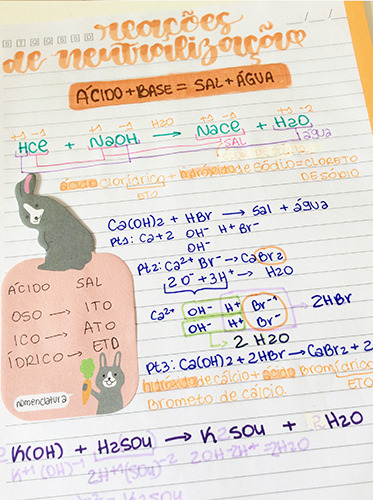 reações
de neutralização
ÁCIDO + BASE = SAL + ÁGUA
+1 -1 +1 -1 H2O +1 -1 +1 -2
HCl + NaOH → NaCl + H2O
SAL água
ácido clorídrico + hidróxido de sódio = CLORETO
ETO DE SÓDIO
Ca(OH)2 + HBr → sal + água
Pt1: Ca+2 OH- H+ Br-
OH-
Pt2: Ca2+ Br- → CaBr2
2O- + 3H+ → H2O
Ca2+ OH- H+ Br-1 2HBr
OH- H+ Br-
2 H2O
ÁCIDO SAL
OSO → ITO
ICO → ATO
ÍDRICO → ETO
nomenclatura
Pt3: Ca(OH)2 + 2HBr → CaBr2 + 2
hidróxido de cálcio + ácido Bromídrico
ETO
Brometo de cálcio.
K(OH) + H2SO4 → K2SO4 + H2O
K+1 (OH)-1 2H+1 (SO4)-2 2OH- 2H+ = 2H2O